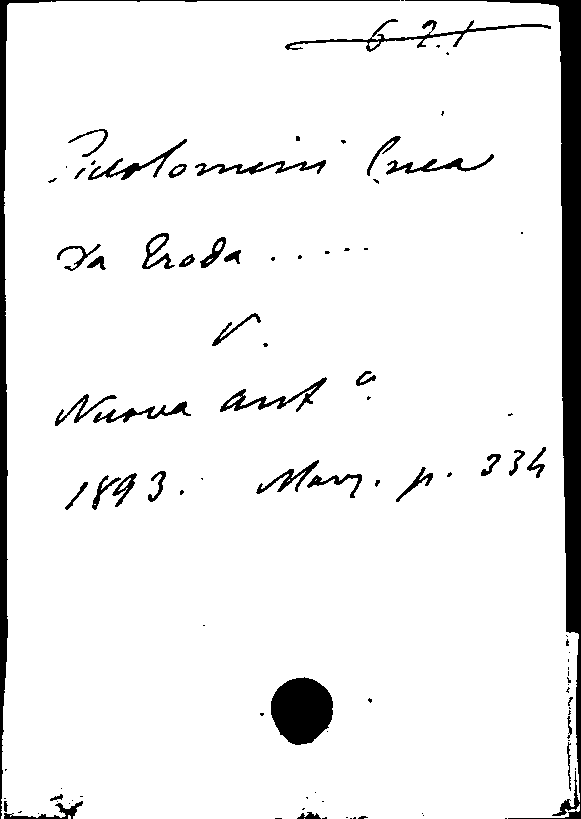 621
Piccolomini Enea
Da Eroda .....
V.
Nuova Antª
1893. Marz. p. 334